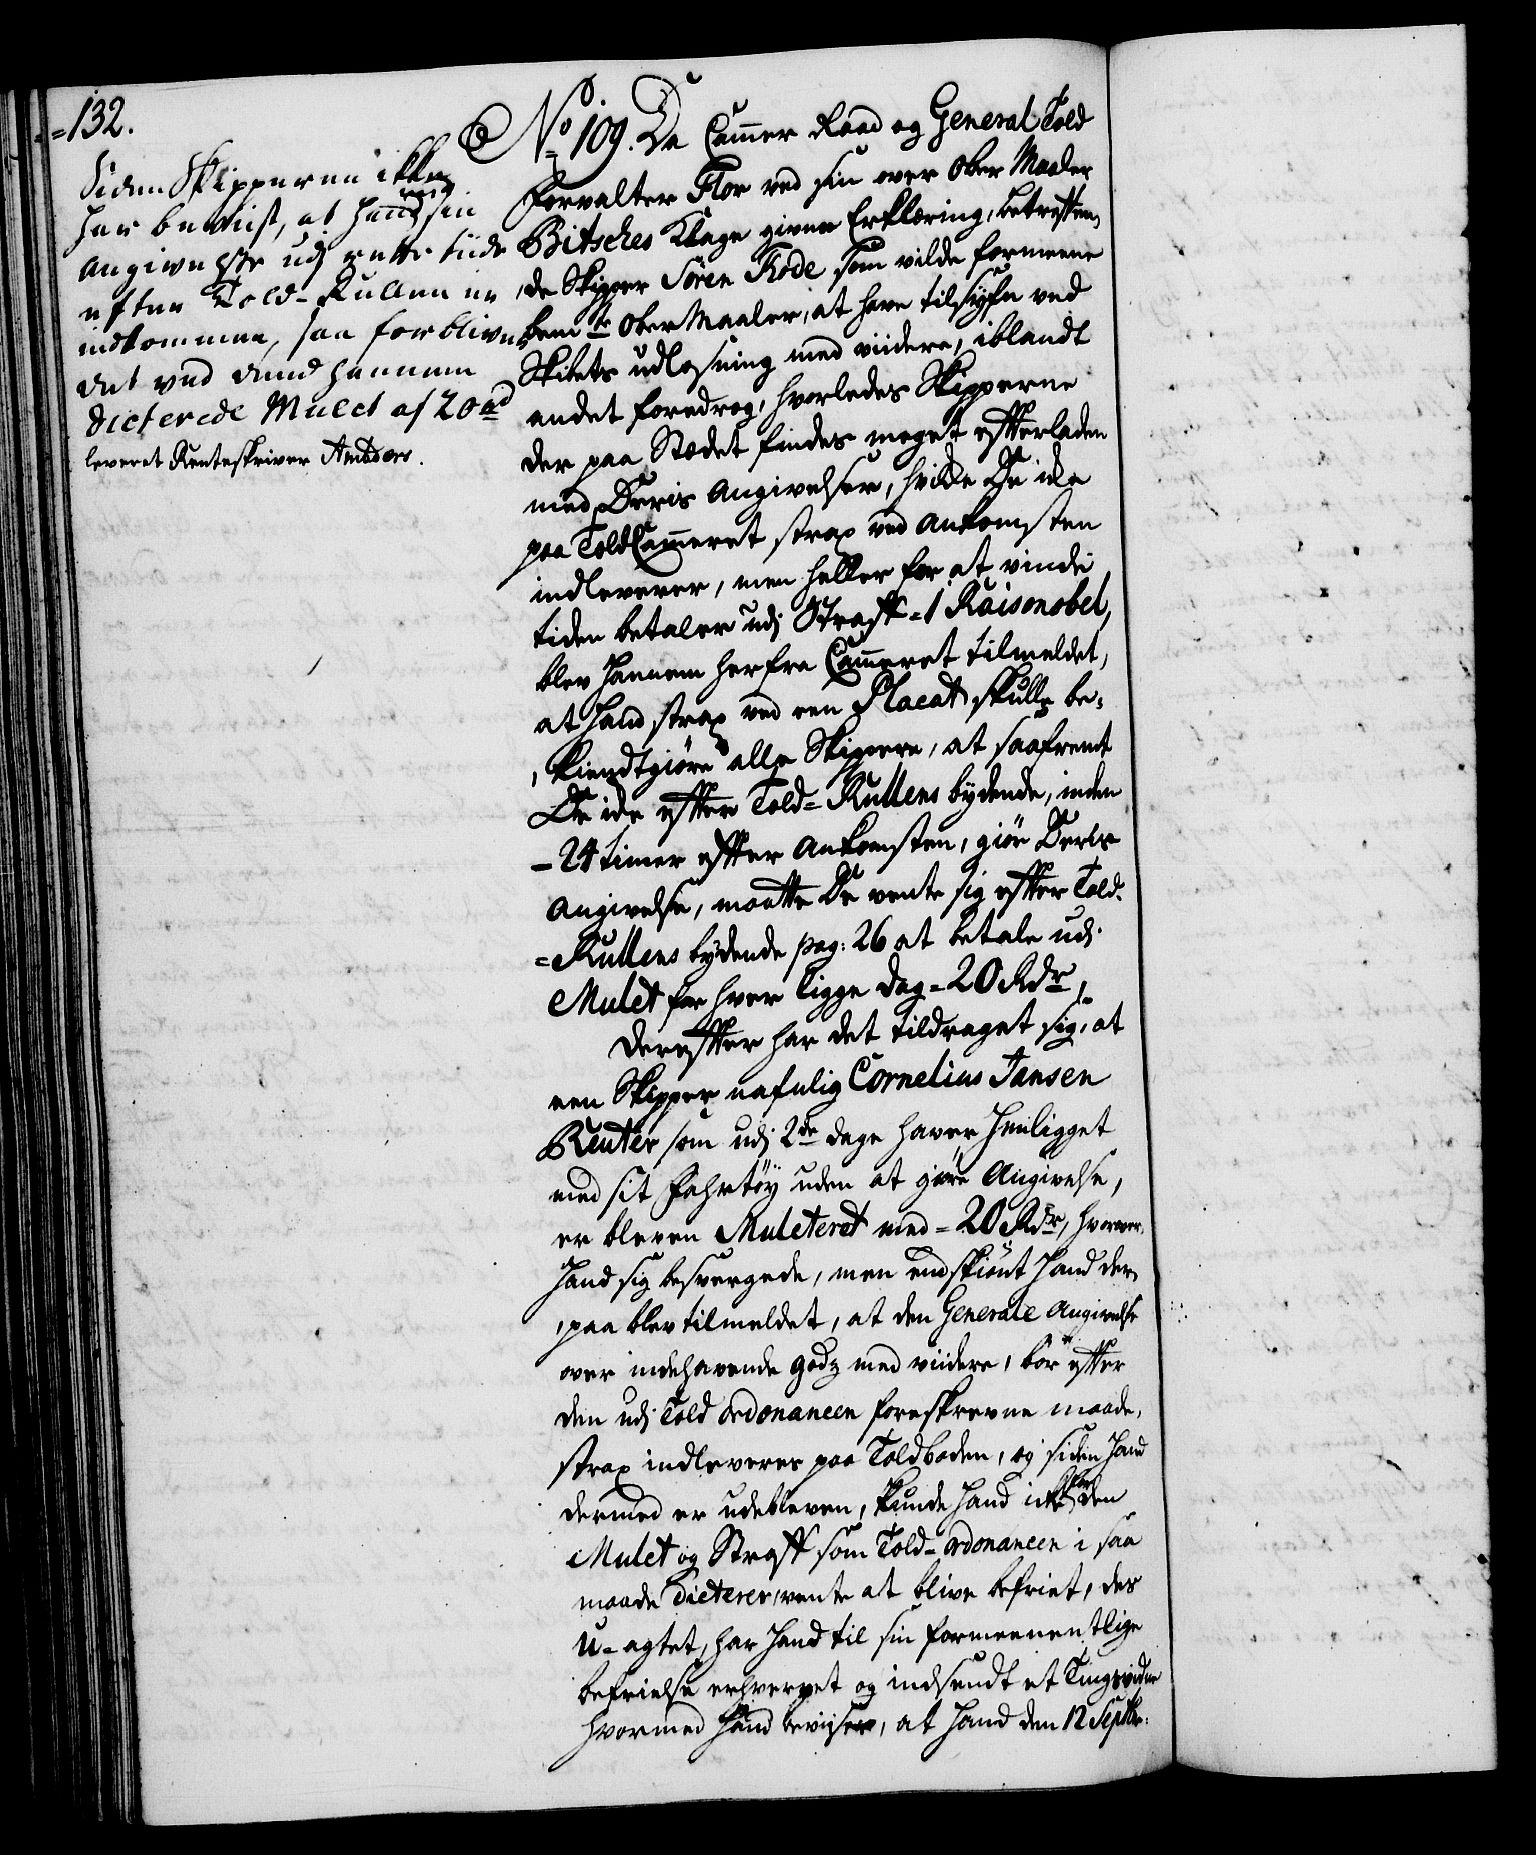 =132.
Siden Skipperen ikke
har beviist, at hand med sin
angivelse udj rette tiide
efter Told-Rullen er
indkommen, saa forbliver
det ved dend hannem
dicterede Mulct af 20 rd
leveret Renteskriver Anders.
No 109. Da Cammer Raad og General Told
Forvalter Flor ved sin over Ober Maaler
Bitsches Klage given Erklæring, betreffen,
,de Skipper Sören Rode som vilde formeene
bemte Ober Maaler, at have tilsyfn ved
Skibets udlosning med viidere, iblandt
andet foredrog, hvorledes Skipperne
der paa Stædet findes meget efterladen
med Deris Angivelser, hvilke De icke
paa ToldCammeret strax ved ankomsten
indleverer, men heller for at vinde
tiden betaler udj Straff = 1 Raisonobel,
blev hannem herfra Cammeret tilmeldet,
at hand strax ved een Placat skulle be-
,kiendtgiöre alle Skippere, at saafremt
De icke efter Told-Rullens bydende, inden
- 24 timer efter Ankomsten, giör Deris
Angivelse, maatte De vente sig efter Told-
=Rullens bydende pag: 26 at betale udj
Mulct for hver ligge dag = 20 Rdr,
Derefter har det tildraget sig, at
een Skipper nafnlig Cornelius Jansen
Reuter som udj 2de dage haver henligget
med sit fahrtöy uden at giöre Angivelse,
er bleven Mulcteret med = 20 Rdr, hvorover
hand sig besvergede, men endskiönt hand der,
,paa blev tilmeldet, at den Generale Angivelse
over indehavende godz med viidere, bör efter
den udj Told ordonancen foreskrevne maade,
strax indleveres paa Toldboden, og siden hand
dermed er udebleven, kunde hand icke for den
Mulct og Straff som Told-ordonancen i saa
maade dicterer, vente at blive befriet, des
u-agtet, har hand til sin formeenentlige
befrielse erhvervet og indsendt et Tingsvidne
hvormed hand beviser, at hand den 12 Septbr: